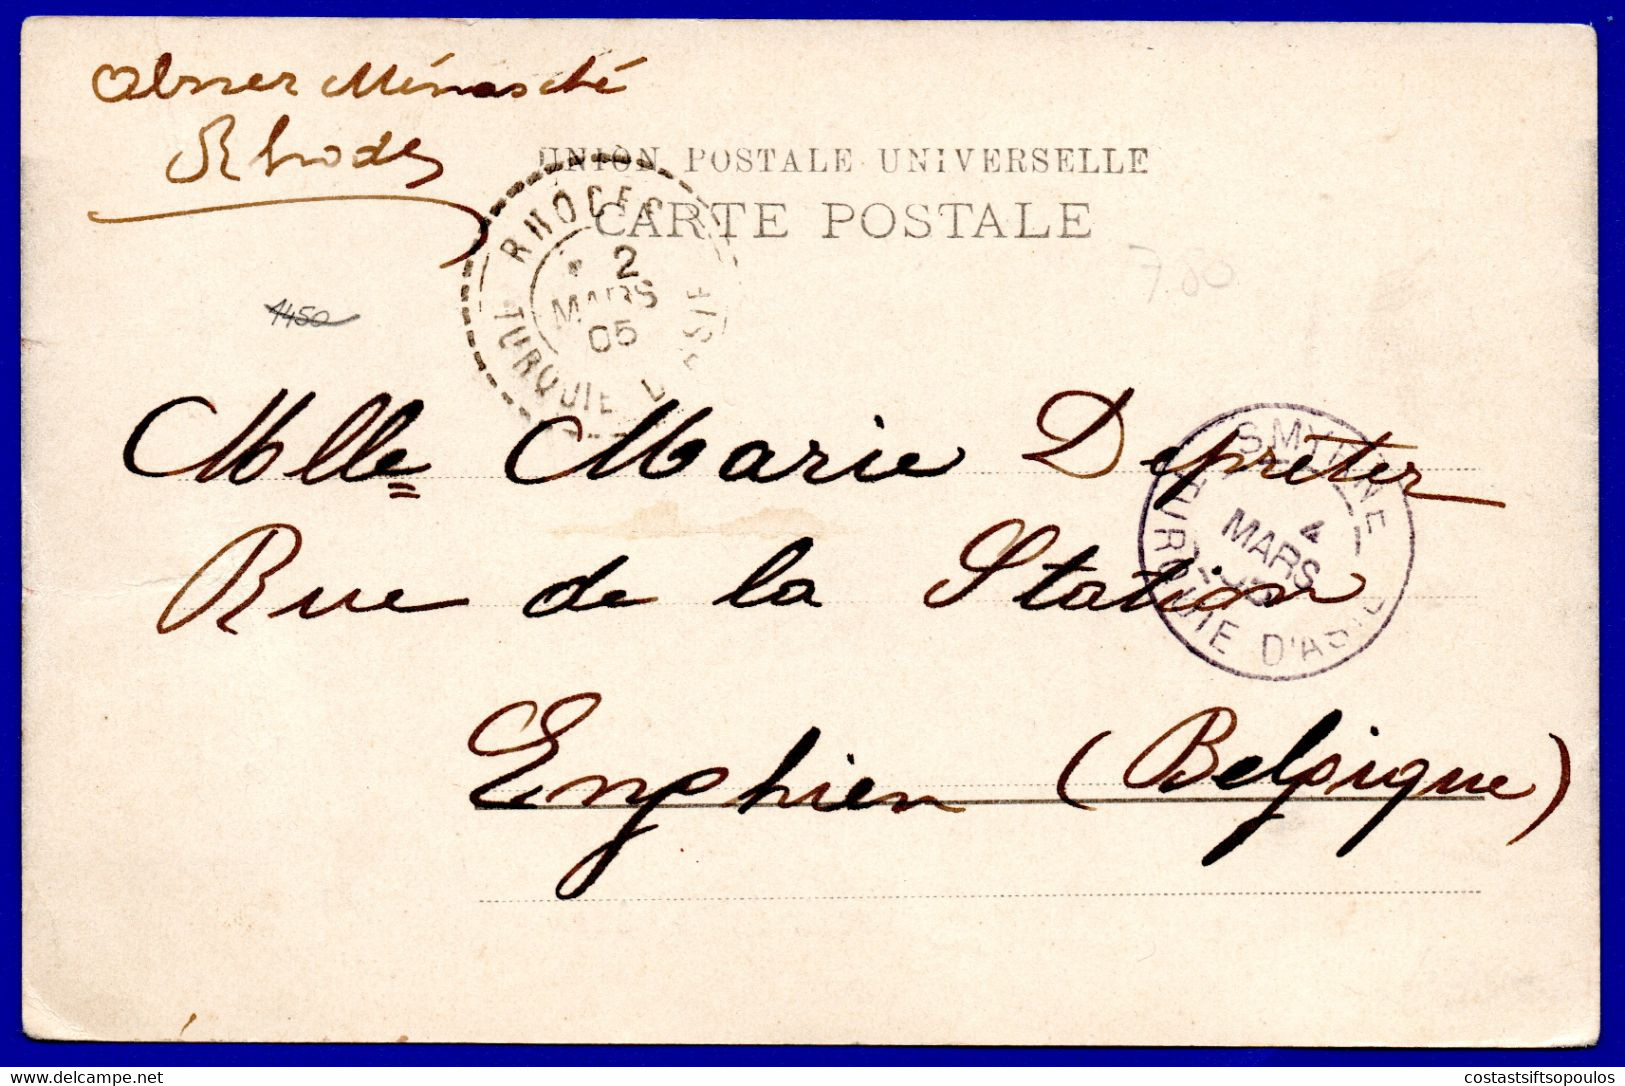 Abner Ménasché
Rhodes
UNION POSTALE UNIVERSELLE
CARTE POSTALE
RHODES
2
MARS
05
TURQUIE D'ASIE
7.50
1450
Mlle Marie Depreter
SMYRNE
4
MARS
05
TURQUIE D'ASIE
Rue de la Station
Enghien (Belgique)
www.delcampe.net
costastsiftsopoulos